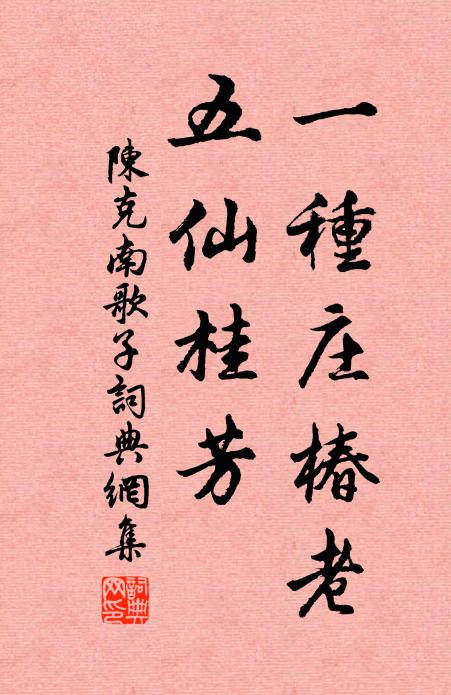 一種庄椿老
五仙桂芳
陳克南歌子詞典網集
詞典網印